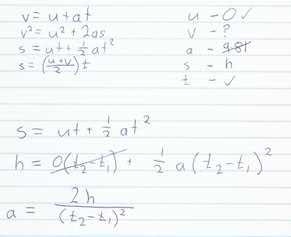 v = u + at
v² = u² + 2as
s = ut + ½ at²
s = (u+v/2) t
u - 0 ✓
v - ?
a - 9.81
s - h
t - ✓
s = ut + ½ at²
h = 0(t₂-t₁) + ½ a (t₂-t₁)²
a = 2h / (t₂-t₁)²